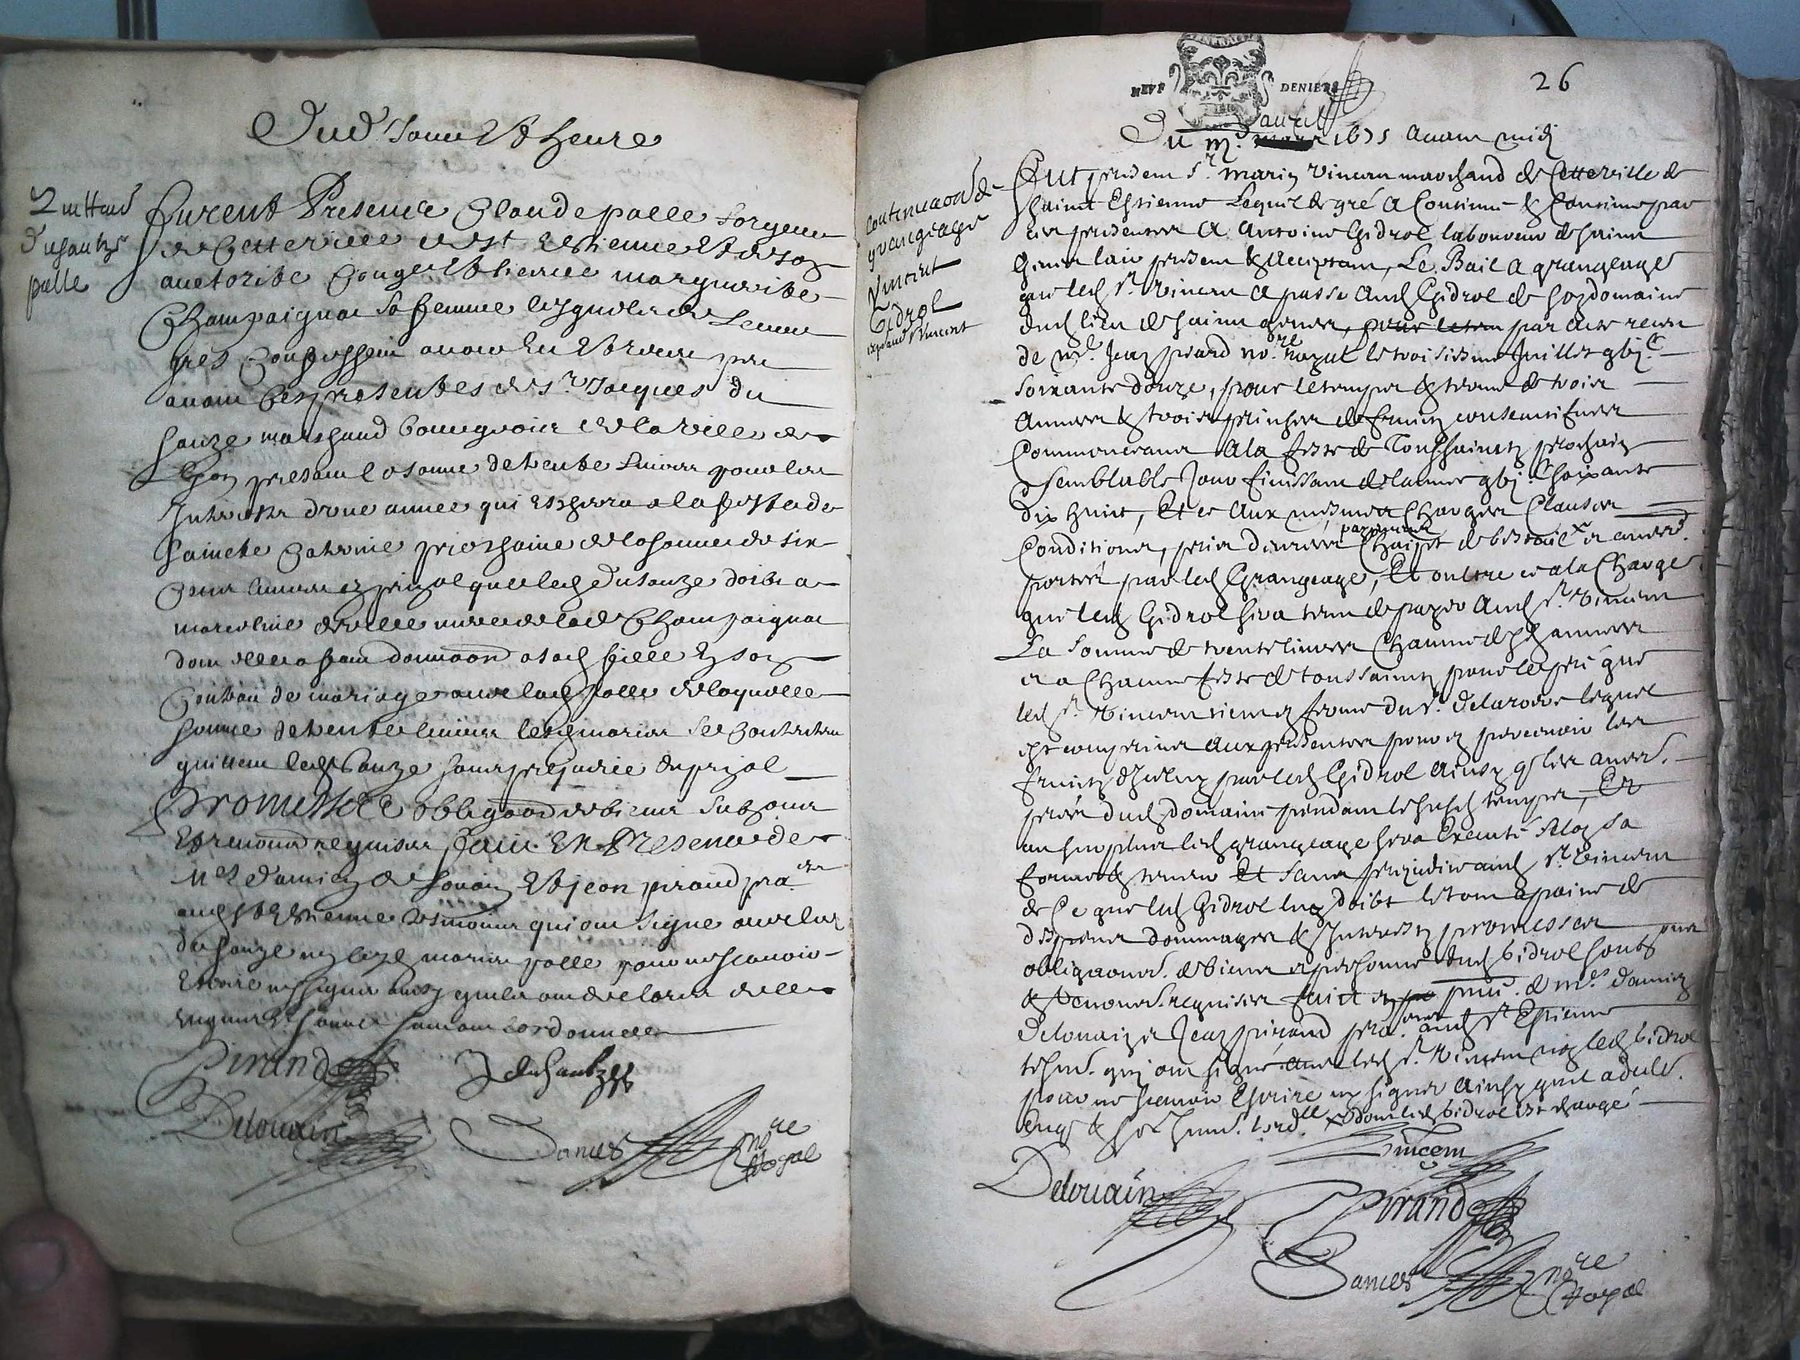 Dud Jour & heure
Quittance
Duhautze
palle
Furent Presence Claude palle forgeur
de Cette ville de St Estienne & de son
auctorite Conge & licence marguerite
Champaignac sa femme lesquels de leurs
gres Confessent avoir Eu & receu par
avant ces presentes de Sr. Jacques du
hauze marchand bourgeois de la ville de
Lyon presant la somme de trente livres pour les
Interestz d'une annee qui Escherra a la feste de
saincte Catherine prochaine de la somme de six
Cens livres en prinzal que led duhauze doibt a
mere de lad Champaignac
dont elle a faict donnaon a sad fille En son
Contrat de mariage avec led palle de laquelle
somme de trente livres lesd mariez se Contentent
quittent led duhauze sans prejudice du prizal
Promettere obligaon de biens Subzons
Et renonon requises faict En Presence de
Mes damien de louain & jean pirand pra.ens
aud St Estienne tesmoins qui ont signe avec led
du hauze non lesd mariez palle pour ne scavoir
Escrire ny signer ainsy quils ont declare de ce
enquis & sommes suivant l'ordonnance
Pirand
J duhautze
Delouain
Dances
nre
Royal
NEUF DENIERS
26
avril
Du m. 1675 avant midy
Continuaon de
grangeage
Vincent
Gidrol
expedié Vincent
Fut present Sr. Marin Vincent marchand de Cette ville de
Sainct Estienne Lequel de gré a Continué & Continue par
ces presentes A Antoine Gidrol laboureur de Sainct
Genes laie present & acceptant, Le Bail a grangeage
que led Sr. Vincent a passé aud Gidrol de son domaine
dud lieu de Sainct Genes, par acte receu
de Me. Jean pirard no.re Royal le troisiesme Juillet gbic
soixante douze, pour le temps & terme de trois
Annees & trois prinses de fruictz consecutives
Commenceant A la feste de Toussainctz prochain
& semblable Jour finissant de l'annee gbic Soixante
dix huict, Et ce Aux mesmes Charges Clauses
Conditions, prix d'argent Cheptt de bestail & autres
portés par led Grangeage, Et oultre ce a la Charge
que led Gidrol sera tenu de payer Aud Sr. Vincent
La Somme de trente livres Chacune desd annees
et a Chacune feste de toussainctz pour le pré que
led Sr. Vincent tient en ferme du Sr. Delaroere lequel
est comprins aux presentes pour en percevoir les
fruictz & foins par led Gidrol ainsy qe les autres
prés dud domaine pendant le susd temps, Et
au surplus led grangeage sera Executé selon sa
forme & teneur Et Sans prejudice aud Sr. Vincent
de Ce que led Gidrol luy doibt le tout a paine de
despens dommages & Interestz promesses
obligaons. de biens & personne dud Gidrol soubz
& renons. requises faict en pnce. de Me. Damien
Delouain & Jean pirand pra.ens aud St Estienne
tesms. qui ont signé avec led Sr. Vincent non led Gidrol
pour ne scavoir Escrire ny signer Ainsy quil a declé.
Enqs & Sommé. l'ordce dont led Gidrol est chargé
Vincent
Delouain
Pirand
Dances
nre
Royal